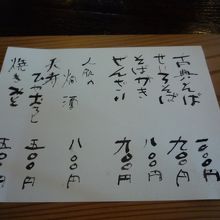 古典そば 一〇〇〇円
せいろそば 九〇〇円
そばがき 八〇〇円
ぜんざい 九〇〇円
人肌の
燗酒 八〇〇円
ひやおろし 五〇〇円
焼きみそ 五〇〇円